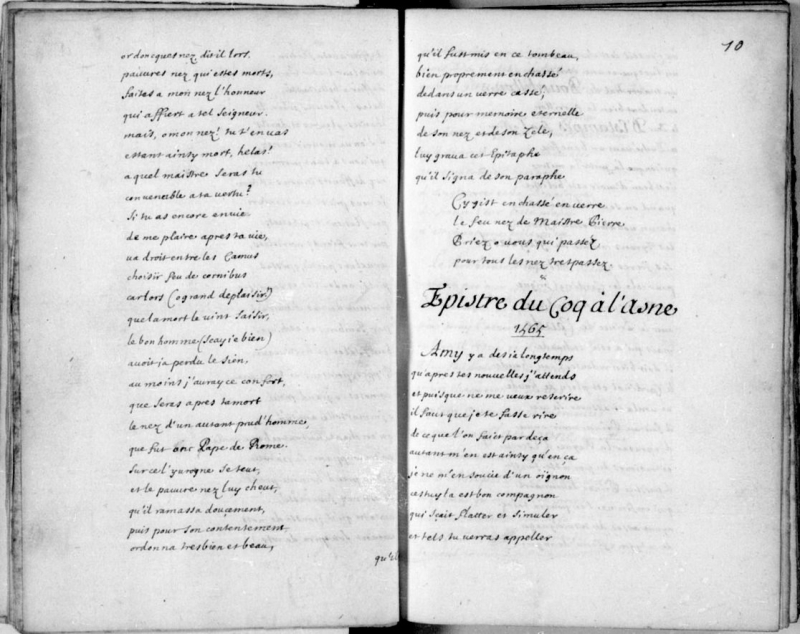 or doncques nez, dit il lors,
pauvres nez, qui estes morts,
faites a mon nez l'honneur
qui affiert a tel seigneur.
mais, o mon nez! tu t'en vas
estant ainsy mort, helas!
a quel maistre seras tu
convenable a ta vertu?
si tu as encore envie
de me plaire apres ta vie,
va droit entre les Camus
choisir feu de cornibus
car lors (o grand deplaisir!)
que la mort le vint saisir,
le bon homme (scay je bien)
avoit ja perdu le sien,
au moins j'auray ce confort,
que seras apres ta mort
le nez d'un autant prud'homme,
que fut onc Pape de Rome.
sur ce l'yvrogne se teut,
et le pauvre nez luy cheut,
qu'il ramassa doucement,
puis pour son contentement,
ordonna tresbien et beau,
qu'il
10
qu'il fust mis en ce tombeau,
bien proprement enchassé
dedans un verre cassé,
puis pour memoire eternelle
de son nez et de son zele,
luy grava cet Epitaphe
qu'il signa de son paraphe
Cy gist enchassé en verre
le feu nez de Maistre Pierre
Priez o vous qui passez
pour tous les nez trespassez.
Epistre du Coq à l'asne
1565
Amy y a desia longtemps
qu'apres tes nouvelles j'attends
et puisque ne me veux rescrire
il faut que je te fasse rire
de ce que l'on faict par deça
autant m'en est ainsy qu'en ça
je ne m'en soucie d'un oignon
cestuy la est bon compagnon
qui sçait flatter et simuler
et tels tu verras appeller